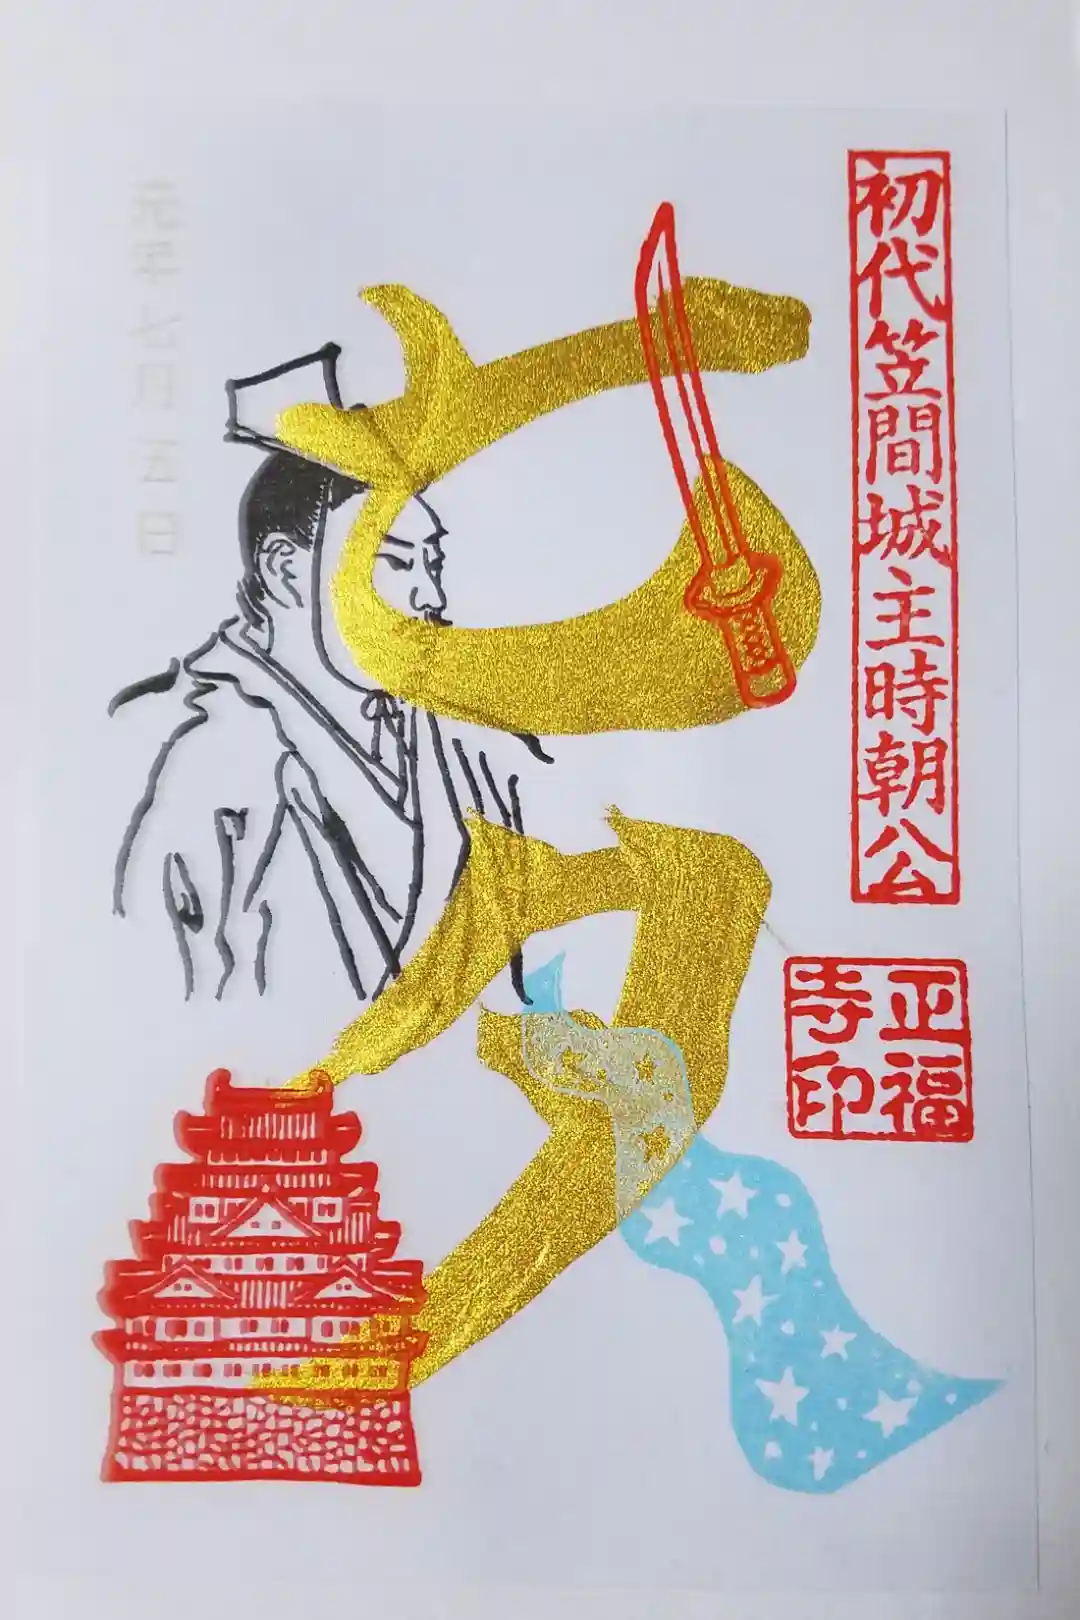 初代笠間城主時朝公
正福
寺印
七夕
元年七月五日